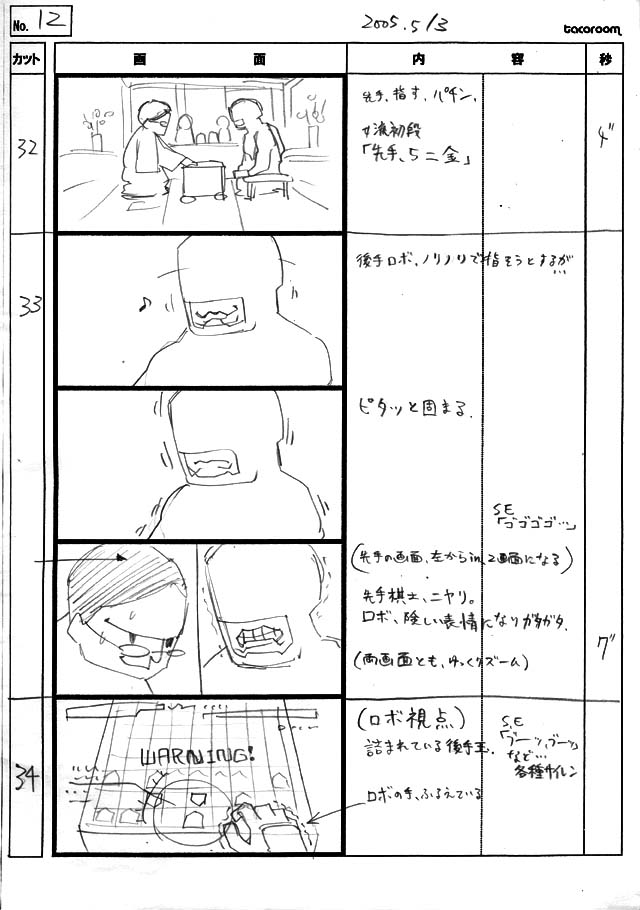 No. 12
2005.5/3
tacoroom
カット
画 面
内 容
秒
32
先手、指す、パチン、
女流初段
「先手、5二金」
4"
33
後手ロボ、ノリノリで指そうとするが…
♪
ピタッと固まる.
S.E
「ゴゴゴゴ…」
(先手の画面、左からin、2画面になる)
先手棋士、ニヤリ。
ロボ、険しい表情になりガタガタ.
(両画面とも、ゆっくりズーム)
7"
34
WARNING!
(ロボ視点)
詰まれている後手玉.
ロボの手、ふるえている
S.E
「ブーッ、ブーッ」
など…
各種サイレン